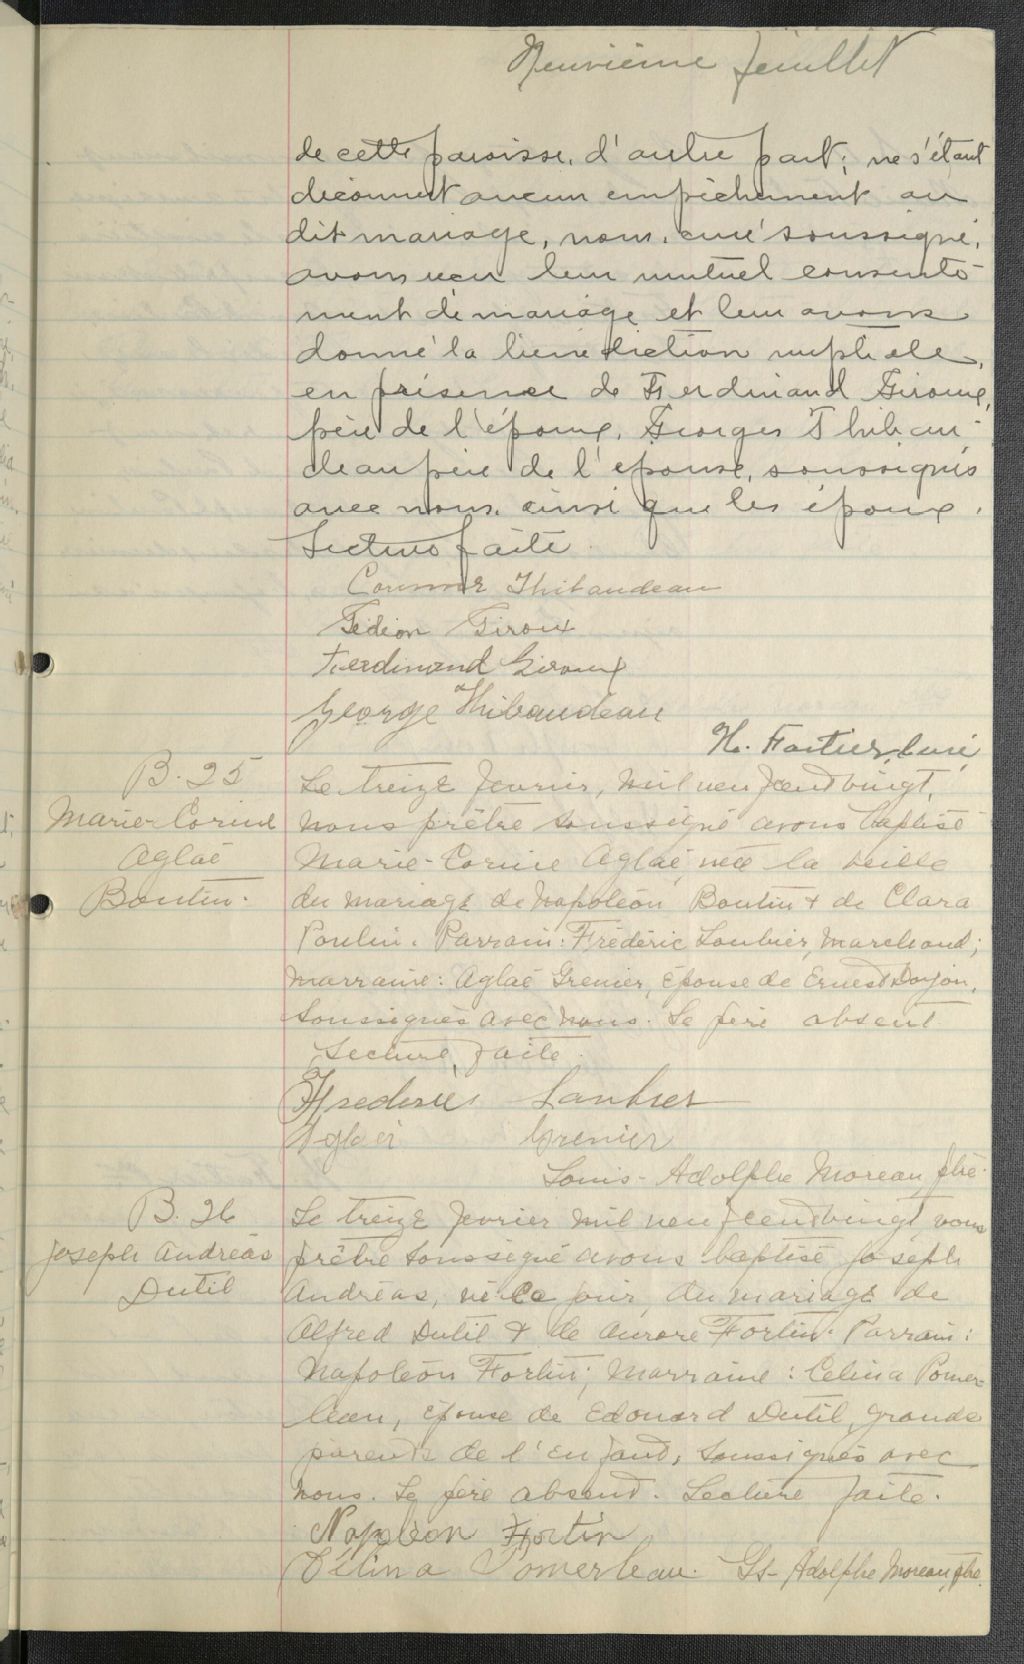 Neuvième feuillet
de cette paroisse, d'autre part; ne s'étant
découvert aucun empêchement au
dit mariage, nous, curé soussigné,
avons reçu leur mutuel consente-
ment de mariage et leur avons
donné la bénédiction nuptiale,
en présence de Ferdinand Giroux,
père de l'époux, Georges Thibau-
deau père de l'épouse, soussignés
avec nous, ainsi que les époux.
Lecture faite.
Thibaudeau
Gédéon Giroux
Ferdinand Giroux
George Thibaudeau
H. Fortier, curé
B. 25
Marie-Corine
Aglaé
Boutin.
Le treize fevrier, mil neuf cent vingt,
nous prêtre soussigné avons baptisé
Marie-Corine Aglaé, née la veille
du mariage de Napoléon Boutin & de Clara
Poulin. Parrain: Frédéric Loubier, Marchand;
marraine: Aglaé Grenier, épouse de Ernest Doyon,
soussignés avec nous. Le père absent
Lecture faite.
Frederic Loubier
Aglaé Grenier
Louis-Adolphe Moreau, ptre.
B. 26
Joseph Andréas
Dutil
Le treize fevrier mil neuf cent vingt nous
prêtre soussigné avons baptisé Joseph
Andréas, né ce jour, du mariage de
Alfred Dutil & de Aurore Fortin. Parrain:
Napoléon Fortin; Marraine: Celina Pomer-
leau, épouse de Edouard Dutil, grands
parents de l'enfant, soussignés avec
nous. Le père absent. Lecture faite.
Napoléon Fortin
Célina Pomerleau. Ls-Adolphe Moreau, ptre.